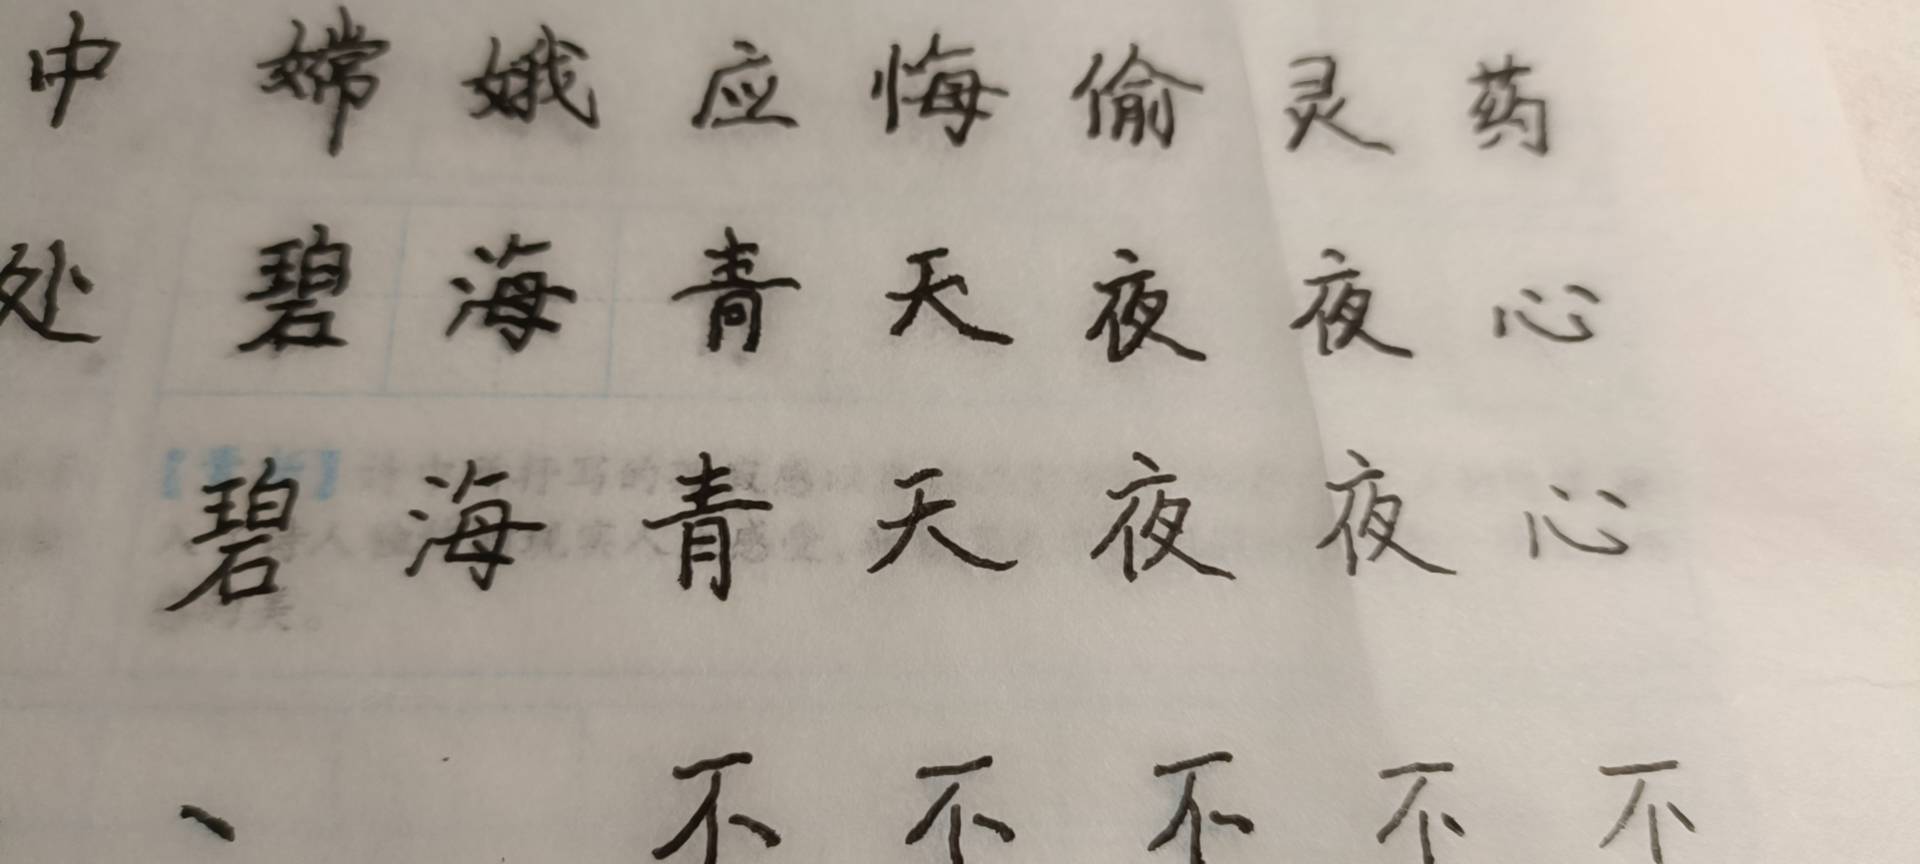 中 嫦 娥 应 悔 偷 灵 药
处 碧 海 青 天 夜 夜 心
碧 海 青 天 夜 夜 心
、 不 不 不 不 不